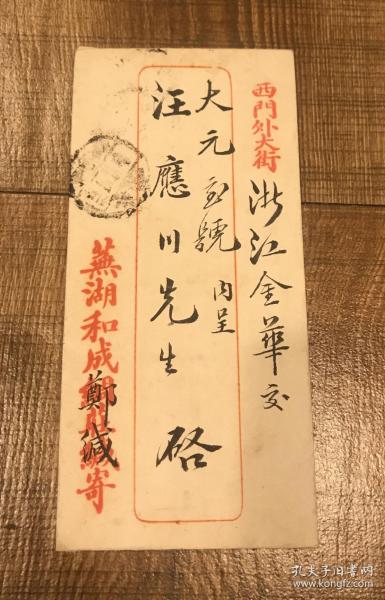 西門外大街
浙江金華交
大元玉號內呈
汪應川先生 啓
鄭緘
蕪湖和成
寄
孔夫子旧书网
www.kongfz.com